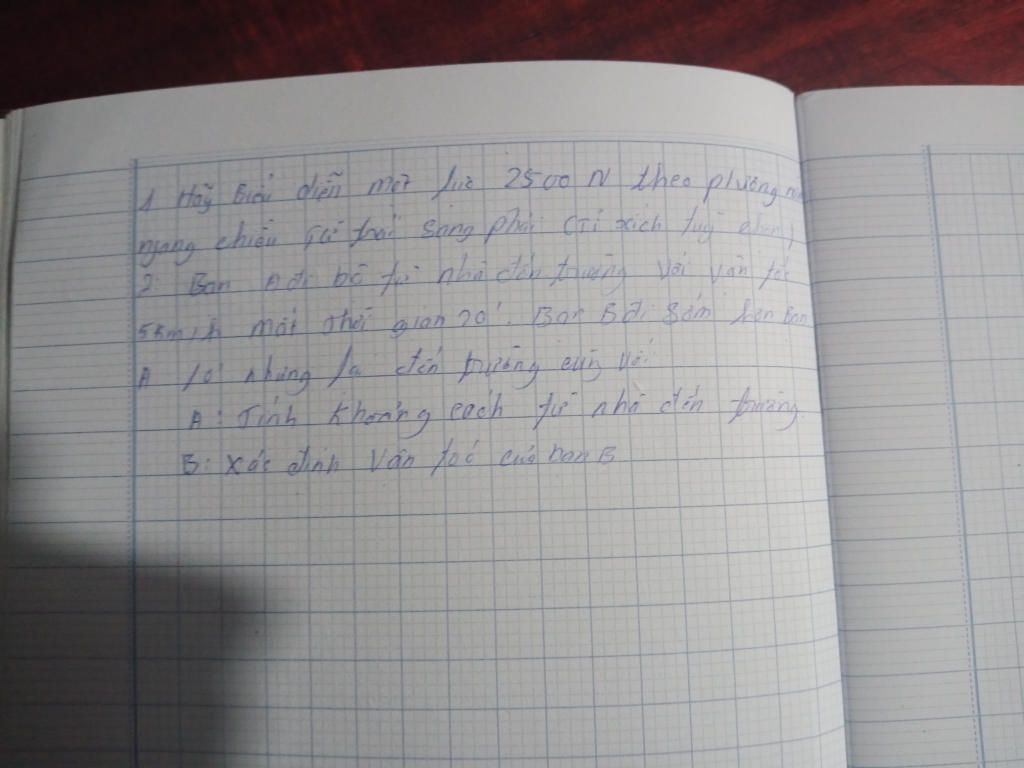 1 Hãy biểu diễn một lực 2500 N theo phương nằm
ngang chiều từ trái sang phải (Tỉ xích tuỳ chọn)
2: Bạn A đi bộ từ nhà đến trường với vận tốc
5km/h mất thời gian 20'. Bạn B đi sớm hơn Bạn
A 10' nhưng lại đến trường cùng với
A: Tính khoảng cách từ nhà đến trường.
B: Xác định vận tốc của bạn B